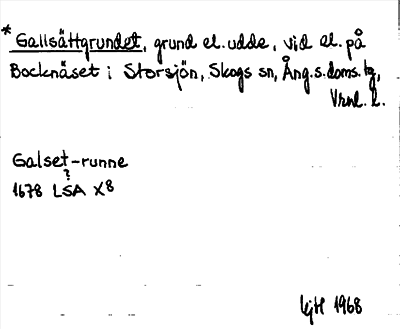 * Gallsättgrundet, grund el. udde, vid el. på
Bocknäset i Storsjön, Skogs sn, Ång.s. doms. tg,
Vrnl. l.
Galset-runne
?
1678 LSA X8
1968